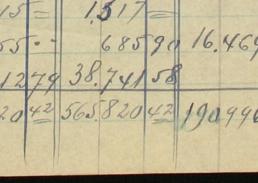 15 = 1.517 =
55 .- 685 90 16.469
1279 38.741 58
20 42 565.820 42 190996